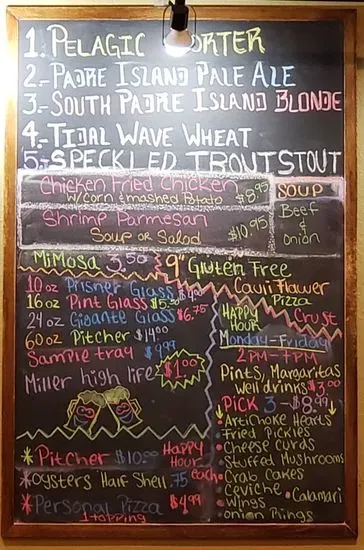 1. PELAGIC PORTER
2.- PADRE ISLAND PALE ALE
3.- SOUTH PADRE ISLAND BLONDE
4.- TIDAL WAVE WHEAT
5.- SPECKLED TROUT STOUT
Chicken Fried Chicken
w/corn & mashed Potato $8.95
Shrimp Parmesan
Soup or Salad $10.95
SOUP
Beef
&
Onion
MiMosa 3.50
9" Gluten Free
Cauliflower
Pizza
Crust
10 oz Prisner Glass $4.00
16 oz Pint Glass $5.50
24 oz Gigante Glass $6.75
60 oz Pitcher $14.00
Sample tray $9.99
Miller high life $1.00
HAPPY
HOUR
Monday-Friday
2PM-7PM
Pints, Margaritas
well drinks $3.00
PiCK 3-$8.99
Artichoke Hearts
Fried Pickles
Cheese Curds
Stuffed Mushrooms
Crab Cakes
Ceviche
Calamari
Wings
Onion Rings
*Pitcher $10.00 Happy
Hour
*Oysters Half Shell .75 each
*Personal Pizza $4.99
1 topping